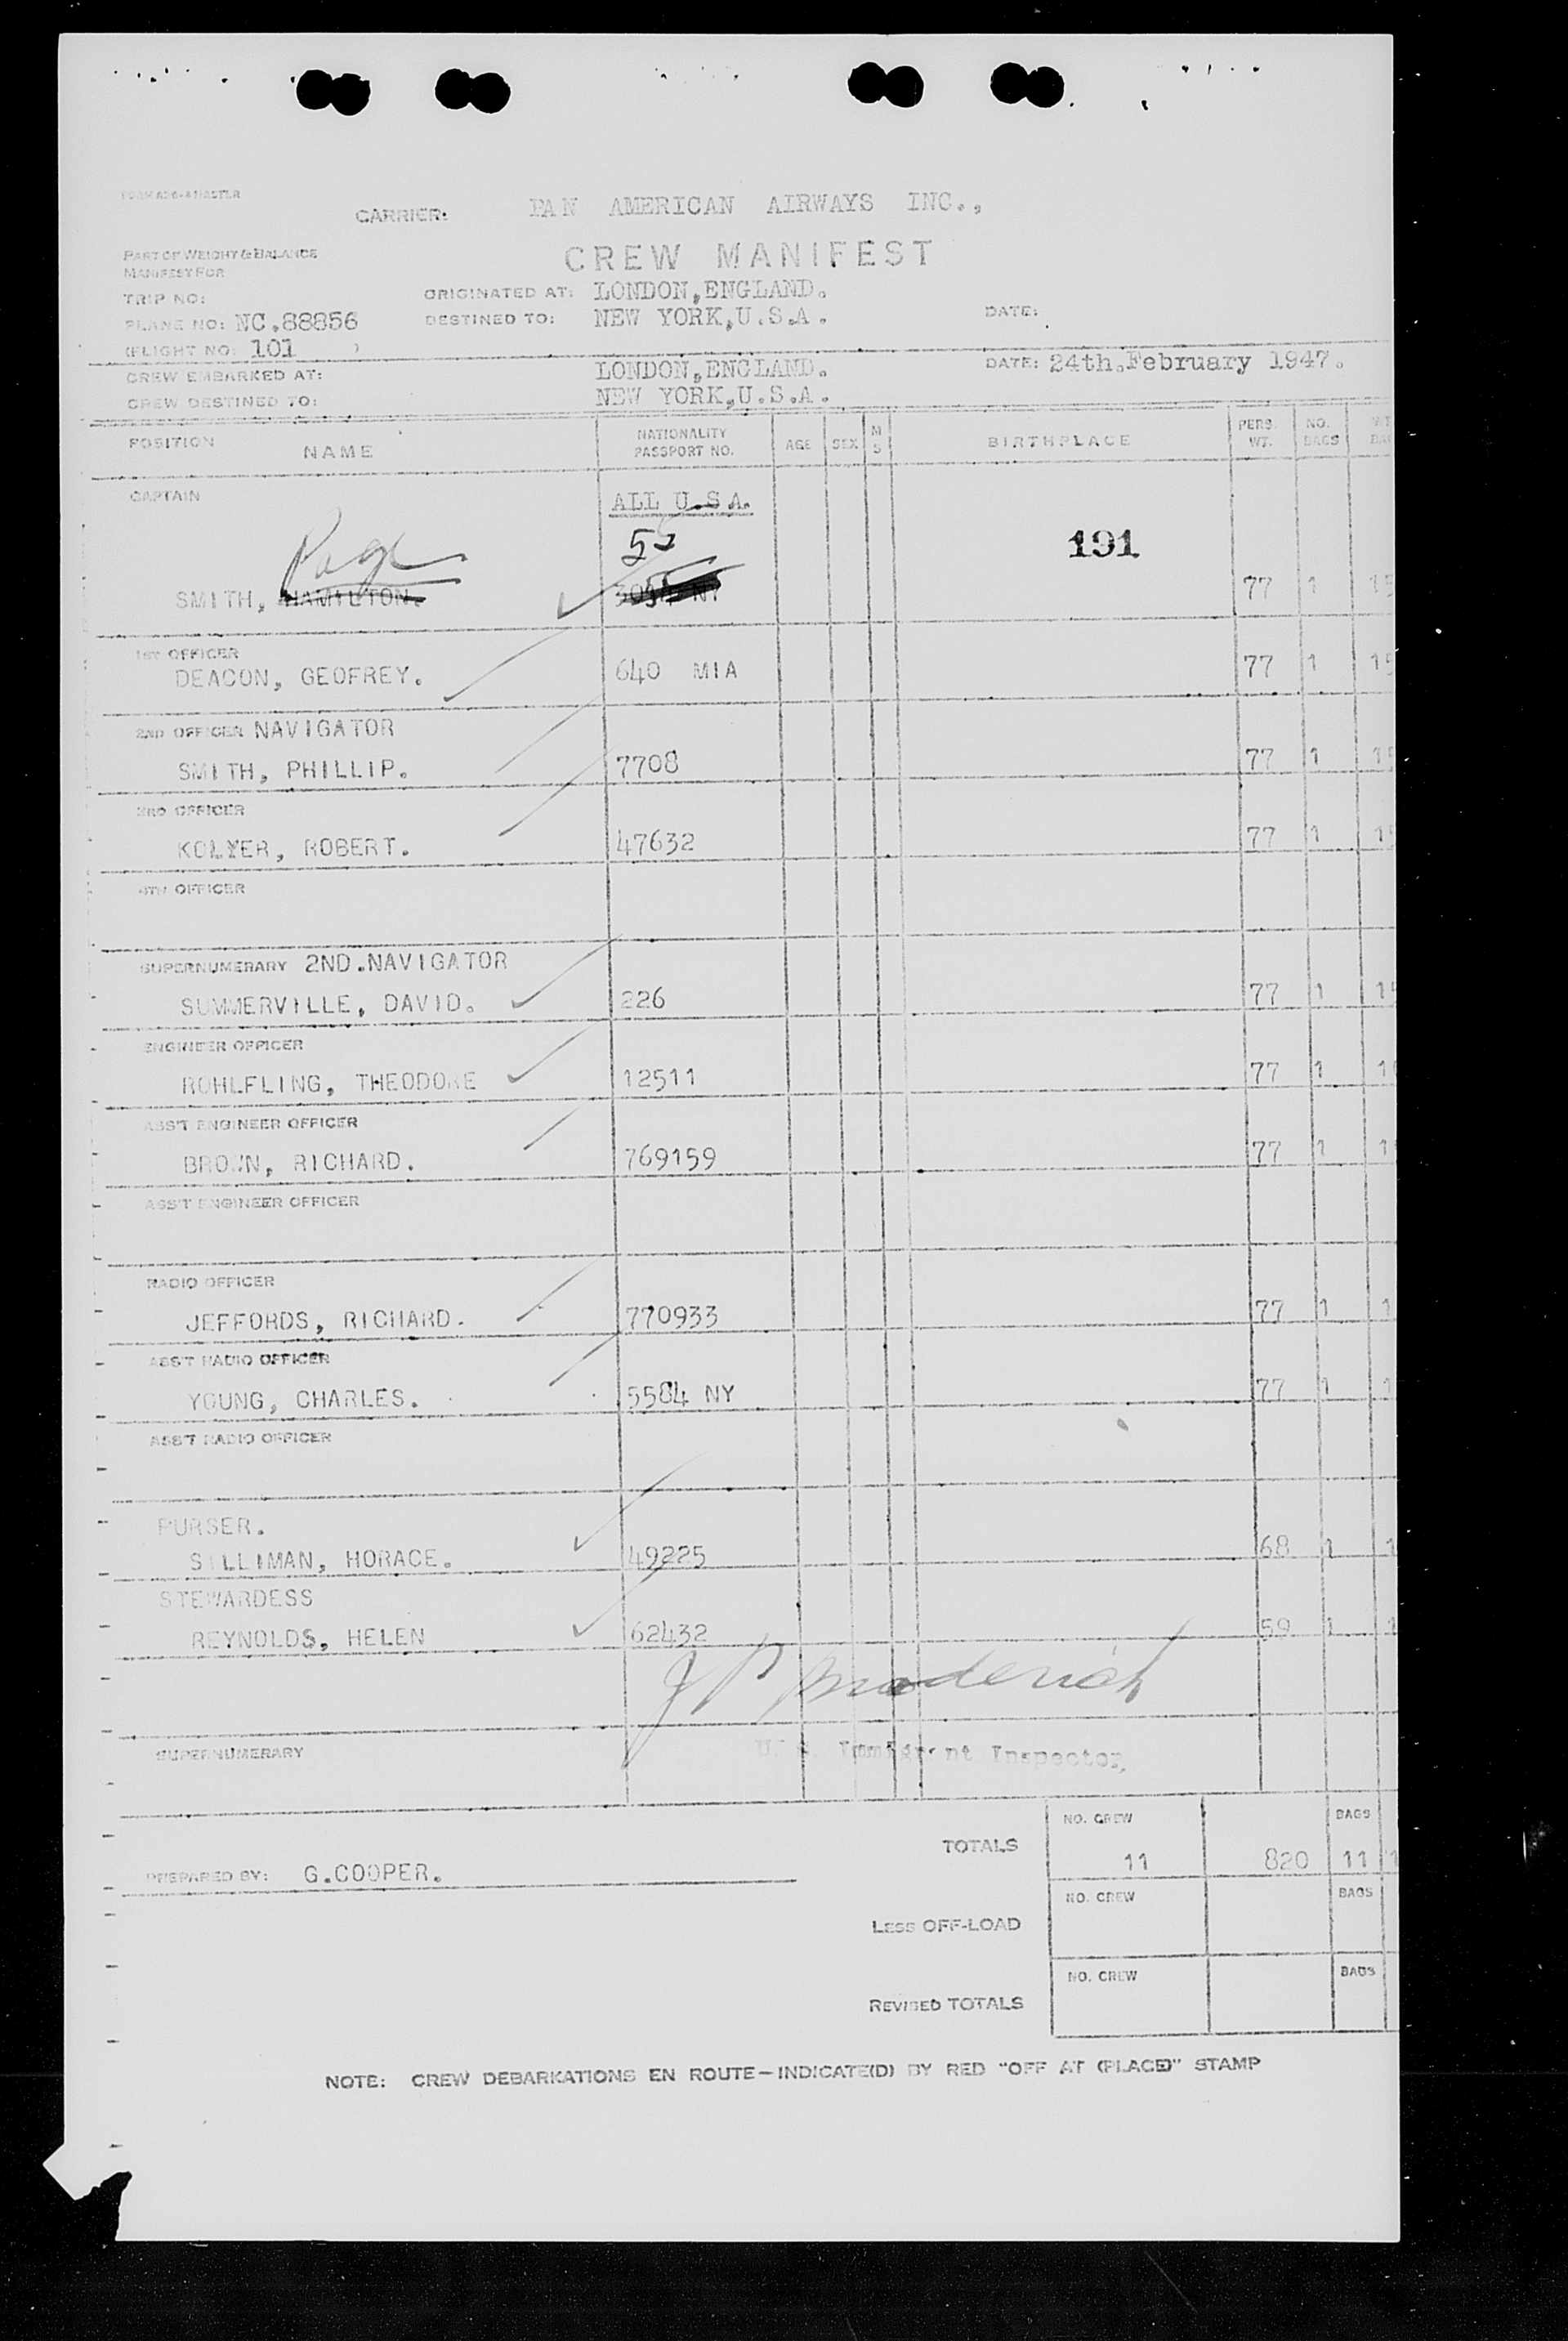 FORM ACG-4 MASTER
CARRIER: PAN AMERICAN AIRWAYS INC.,
PART OF WEIGHT & BALANCE
MANIFEST FOR
CREW MANIFEST
TRIP NO: ORIGINATED AT: LONDON,ENGLAND.
PLANE NO: NC.88856 DESTINED TO: NEW YORK,U.S.A. DATE:
(FLIGHT NO: 101 )
CREW EMBARKED AT: LONDON,ENGLAND. DATE: 24th.February 1947.
CREW DESTINED TO: NEW YORK,U.S.A.
POSITION NAME NATIONALITY PASSPORT NO. AGE SEX M S BIRTHPLACE PERS. WT. NO. BAGS WT
CAPTAIN ALL U.S.A.
Page 55 191
SMITH, HAMILTON. 77 1 15
1ST OFFICER
DEACON, GEOFREY. 640 MIA 77 1 15
2ND OFFICER NAVIGATOR
SMITH, PHILLIP. 7708 77 1 15
3RD OFFICER
KOLYER, ROBERT. 47632 77 1 15
4TH OFFICER
SUPERNUMERARY 2ND.NAVIGATOR
SUMMERVILLE, DAVID. 226 77 1 15
ENGINEER OFFICER
ROHLFLING, THEODORE 12511 77 1 1
ASS'T ENGINEER OFFICER
BROWN, RICHARD. 769159 77 1 1
ASS'T ENGINEER OFFICER
RADIO OFFICER
JEFFORDS, RICHARD. 770933 77 1 1
ASS'T RADIO OFFICER
YOUNG, CHARLES. 5584 NY 77 1 1
ASS'T RADIO OFFICER
PURSER.
SILLIMAN, HORACE. 49225 68 1 1
STEWARDESS
REYNOLDS, HELEN 62432 59 1 1
J P Broderick
SUPERNUMERARY U. S. Immigrant Inspector.
NO. CREW BAGS
TOTALS 11 820 11 1
PREPARED BY: G.COOPER.
NO. CREW BAGS
LESS OFF-LOAD
NO. CREW BAGS
REVISED TOTALS
NOTE: CREW DEBARKATIONS EN ROUTE—INDICATE(D) BY RED "OFF AT (PLACE)" STAMP